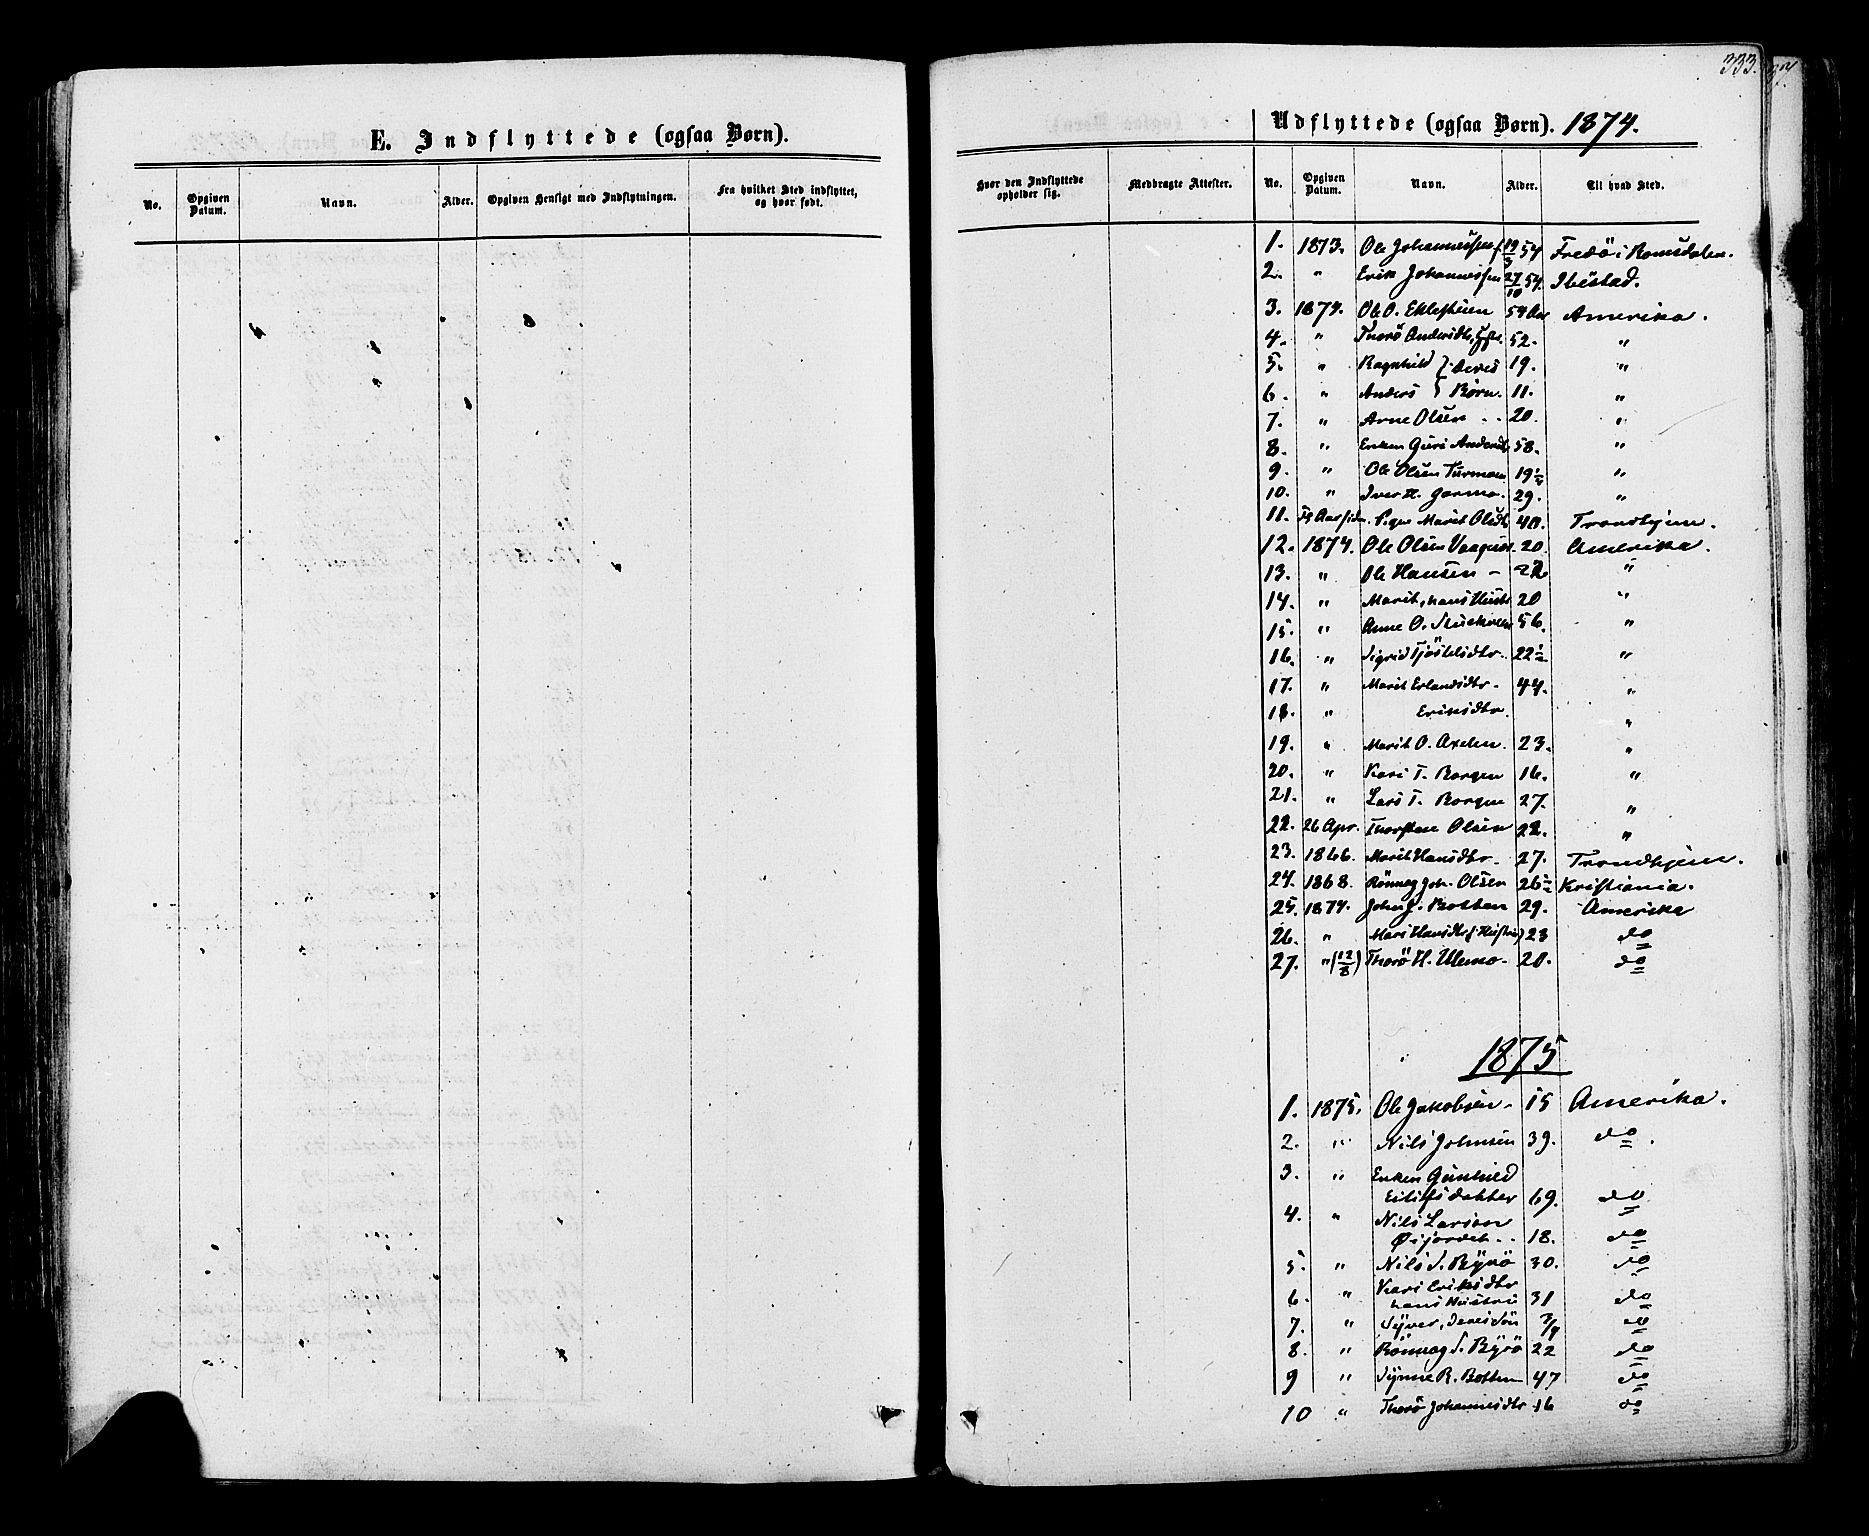 333.
E. Indflyttede (ogsaa Børn).
No. Opgiven Datum. Navn. Alder. Opgiven Hensigt med Indflytningen. Fra hvilket Sted indflyttet, og hvor født.
Udflyttede (ogsaa Børn). 1874.
Hvor den Indflyttede opholder sig. Medbragte Attester. No. Opgiven Datum. Navn. Alder. Til hvad Sted.
1. 1873. Ole Johannessen f. 19/3 54 Fredö i Romsdalen.
2. " Erik Johannessen 27/10 54. Ibestad.
3. 1874. Ole O. 54 Aar Amerika.
4. " Thorö Andersdtr, 52. "
5. " Ragnhild } deres 19. "
6. " Anders } Børn. 11. "
7. " Arne Olsen - - 20. "
8. " Enken Guri Andersdtr 58. "
9. " Ole Olsen 19½ "
10. " Iver H. Garmo. 29. "
11. Pige Marit Olsdtr 40. Trondhjem.
12. 1874. Ole Olsen 20. Amerika.
13. " Ole Hansen - 22 "
14. " Marit, hans Hustr 20 "
15. " Anne O. 56. "
16. " Sigrid 22½ "
17. " Marit Erlandsdtr - 44. "
18. " Eriksdtr. "
19. " Marit O. 23. "
20. " Kari T. Borgen 16. "
21. " Lars T. Borgen 27. "
22. 26 Apr. Thorsten Olsen 22. "
23. 1866. Marit Hansdtr - 27. Trondhjem.
24. 1868. Rönnog Joh. Olsen 26½ Kristiania.
25. 1874. John J. Botten 29. Amerika
26. " Mari Hansdtr (Hustru) 23 do
27. " (12/8) Thorö H. Ulemo - 20. do
1875
1. 1875. Ole Jakobsen - 15 Amerika.
2. " Nils Johnsen 39. do.
3. " Enken Gunhild
Eilifsdatter 69. do
4. " Nils Larsen
Øijordet - - 18. do
5. " Nils S. Byrö 30. do
6. " Kari Eriksdtr
hans Hustru 31 do
7. " Syver, deres Sön 3/4 do
8. " Rönnog S. Byrö 22 do
9 " Synne R. Botten 47 do
10 " Thorö Johannesdtr 16 do